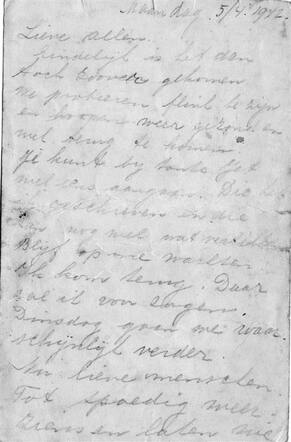 Maandag 5/4. 1942.
Lieve allen.
Eindelijk is het dan
toch zoover gekomen
We probeeren flink te zijn
en hopen weer gezond en
wel terug te komen.
Je kunt bij tante Jet
wel eens aangaan. Die
geschreven en die
nog wel wat vertellen
Blijf op me wachten
Ik kom terug. Daar
zal ik voor zorgen.
Dinsdag gaan we waar-
schijnlijk verder.
Nu lieve menschen
Tot spoedig weer-
ziens en laten we